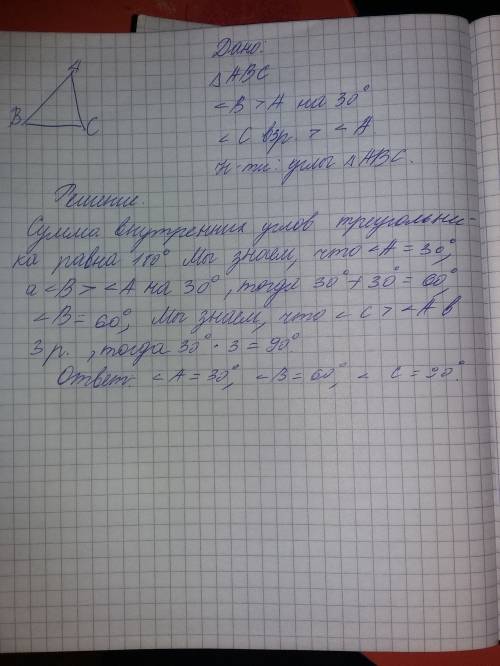 A
B
C
Дано:
△ABC
∠B > A на 30°
∠C в 3р. > ∠A
Н-ти: углы △ABC.
Решение.
Сумма внутренних углов треугольни-
ка равна 180° Мы знаем, что ∠A = 30°,
а ∠B > ∠A на 30°, тогда 30° + 30° = 60°,
∠B = 60°, Мы знаем, что ∠C > ∠A в
3 р., тогда 30° · 3 = 90°
Ответ: ∠A = 30°, ∠B = 60°, ∠C = 90°.